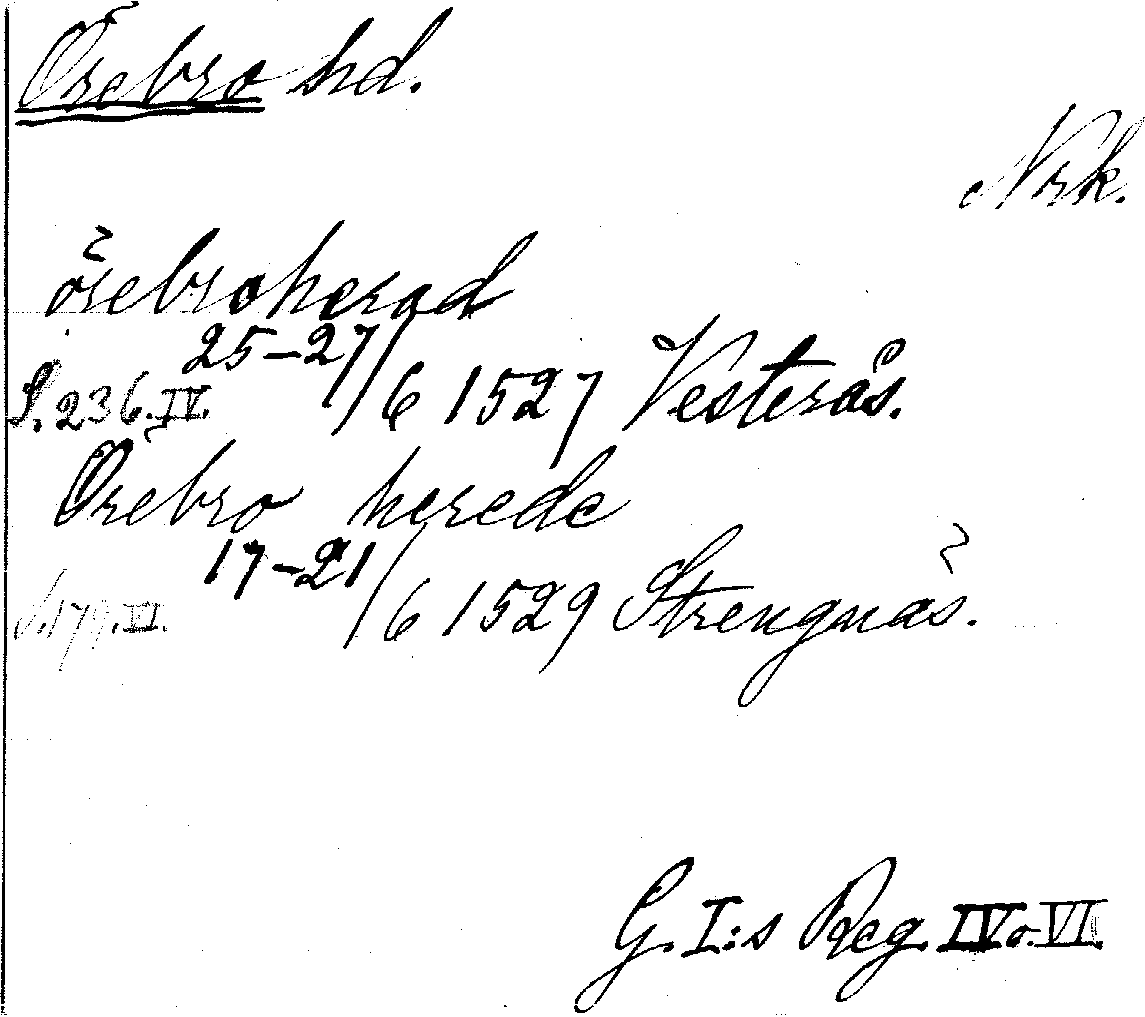 Örebro hd.
Nrk.
örebroherad
25-27/6 1527 Vesterås.
S. 236. IV.
Örebro herede
17-21/6 1529 Strengnäs.
S. 179. VI.
G. I:s Reg. IV o. VI.